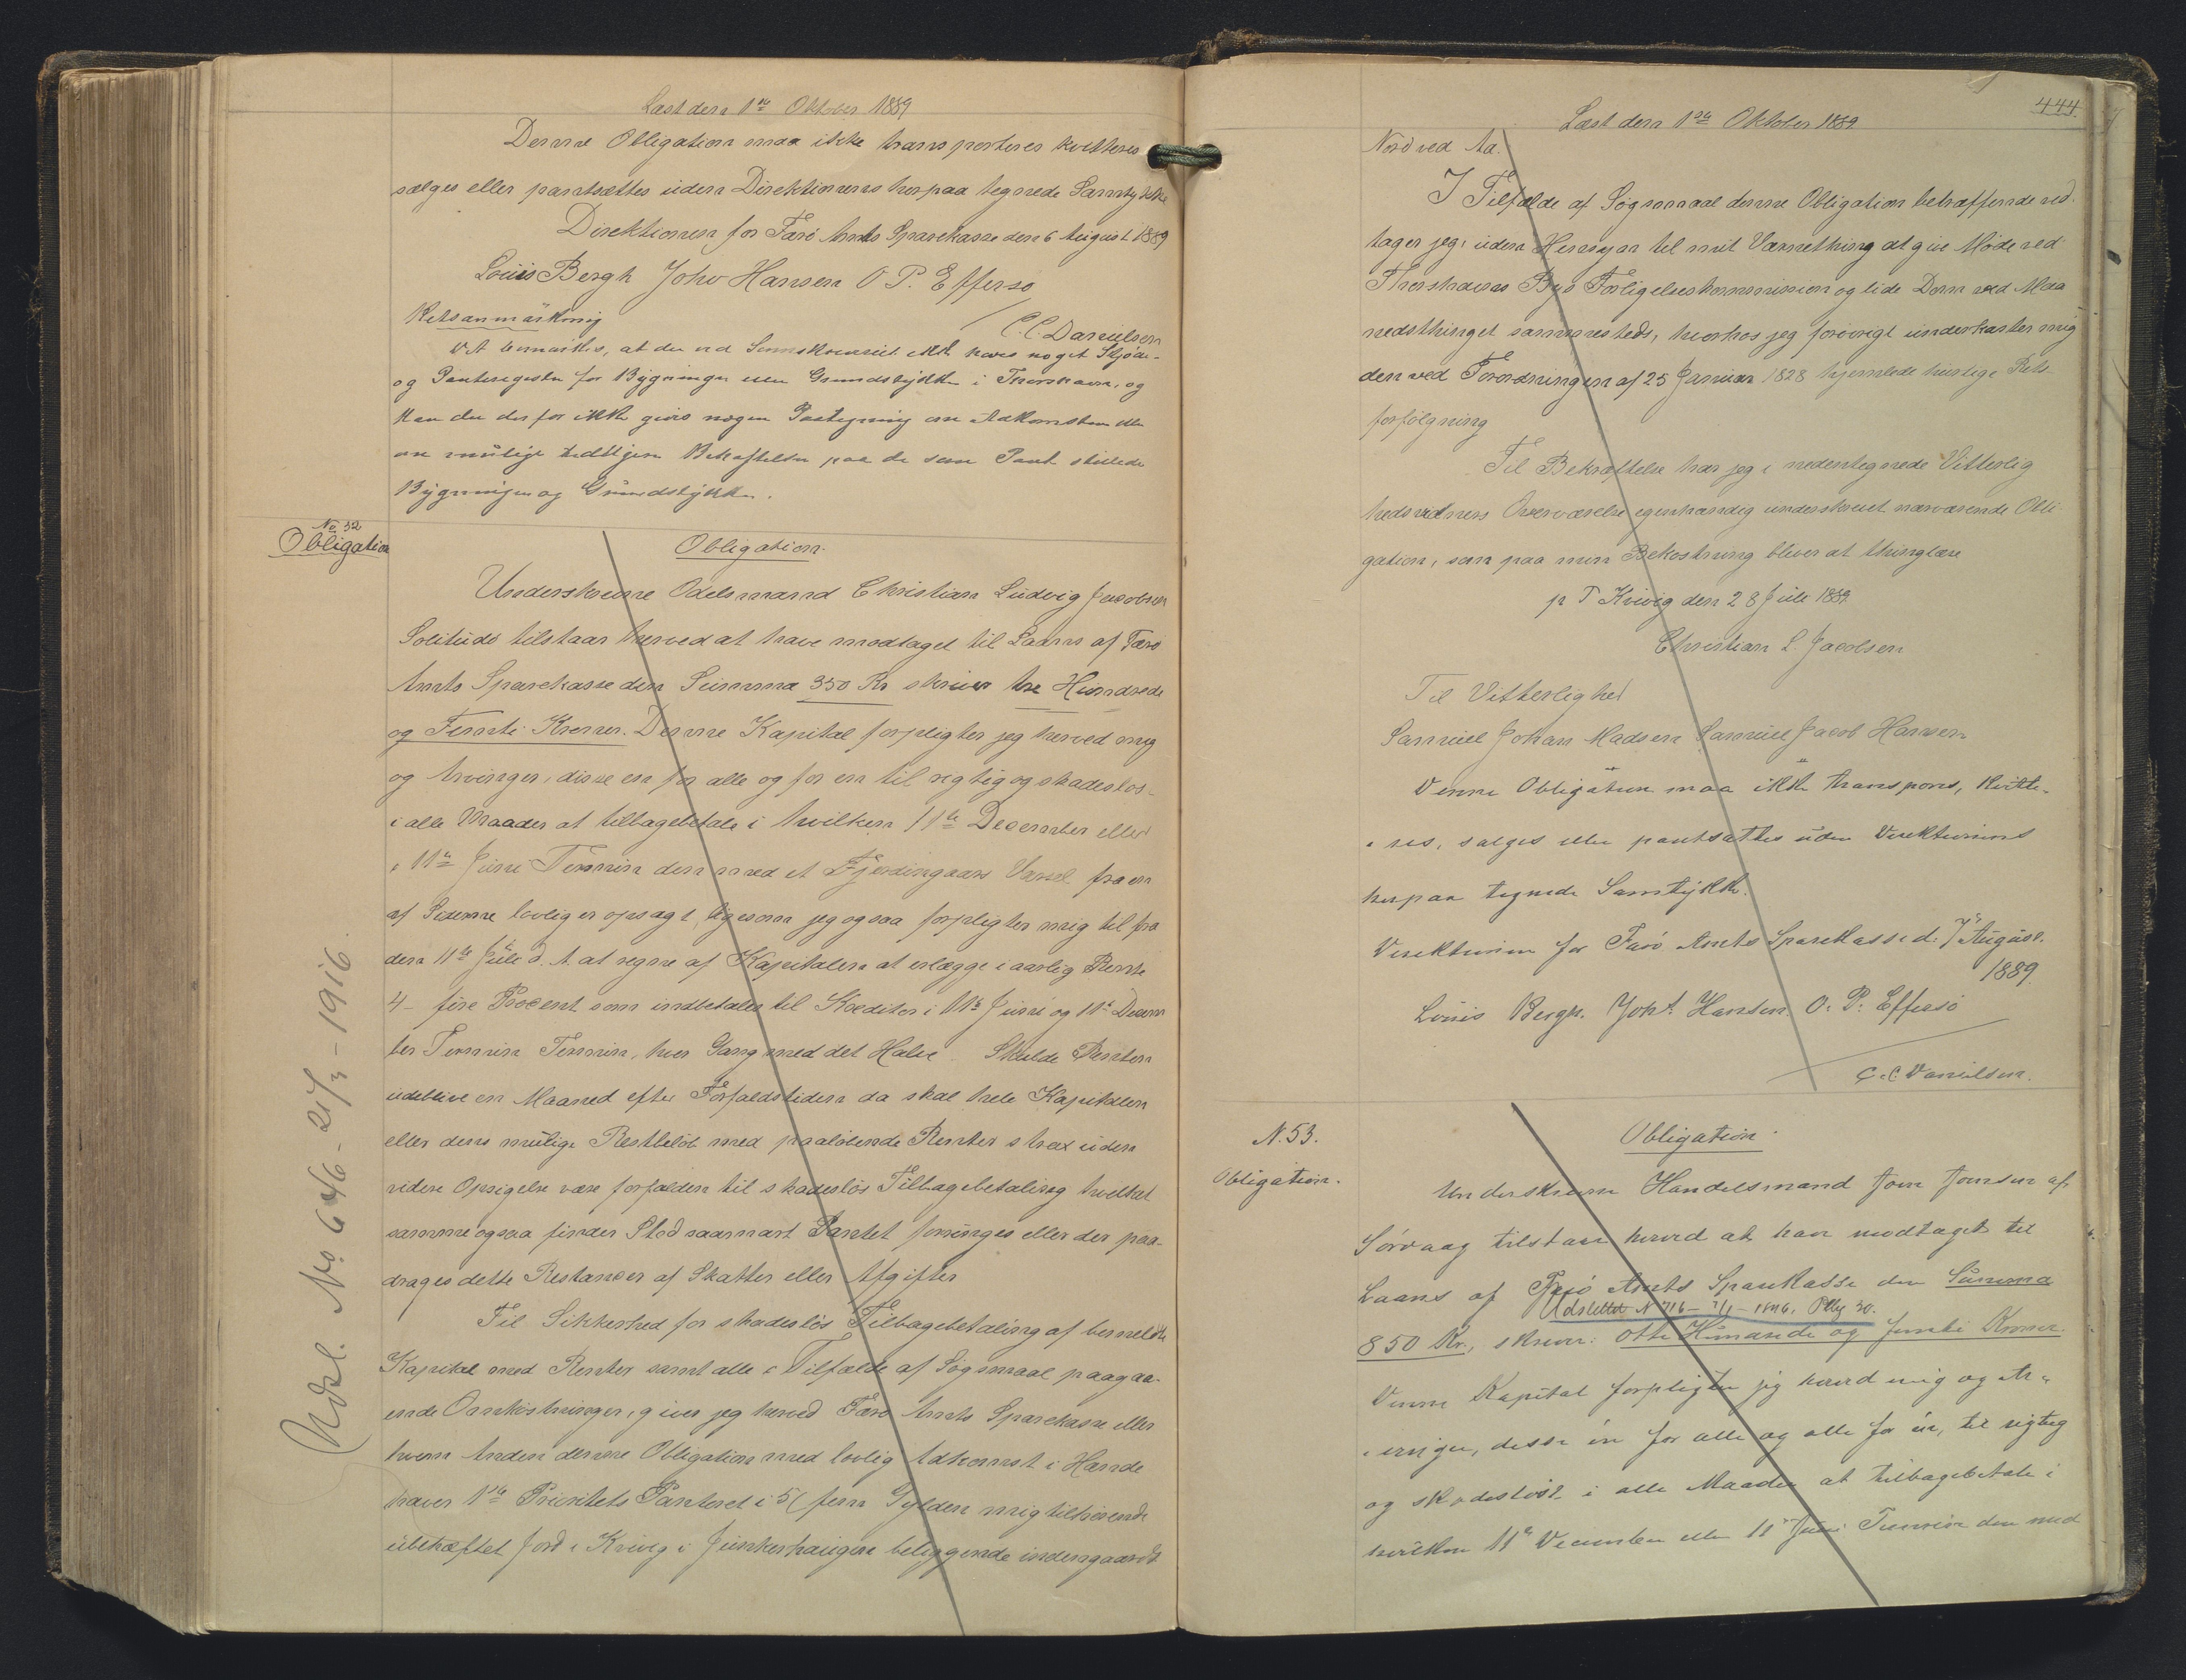 Læst den 1ste Oktober 1889
Denne Obligation maa ikke transporteres kvitteres
sælges eller pantsættes uden Direktionens herpaa tegnede Samtykke
Direktionen for Færö Amts Sparekasse den 6 August 1889
Louis Bergh Johs Hansen O. P. Effersö
C. C. Danielsen
Retsanmærkning
Det bemærkes, at der ved Sorenskriveriet ikke haves noget Skjöde-
og Panteregister for Bygninger uden Grundstykker i Thorshavn, og
kan der derfor ikke gives nogen Paategning om Adkomsten eller
om mulige tidligere Behæftelser paa de som Pant stillede
Bygninger og Grundstykker.
No 52
Obligation
Obligation.
Underskrevne Odelsmand Christian Ludvig Jacobsen
Solitude tilstaar herved at have modtaget til Laans af Færö
Amts Sparekasse den Summa 350 Kr skriver tre Hundrede
og Femti Kroner. Denne Kapital forpligter jeg herved mig
og Arvinger, disse en for alle og for en til rigtig og skadeslos-
i alle Maader at tilbagebetale i hvilken 11te December eller
11te Juni Termin den med et Fjerdingaars Varsel fra en
af Siderne lovlig er opsagt, ligesom jeg ogsaa forpligter mig til fra
den 11te Juli d. A. at regne af Kapitalen at erlægge i aarlig Rente
4 - fire Procent som indbetales til Kreditor i 11te Juni og 11te Decem
ber Termin Termin, hver Gang med det Halve. Skulde Renten
udeblive en Maaned efter Forfaldstiden da skal hele Kapitalen
eller dens mulige Restbelöb med paalöbende Renter strax uden
videre Opsigelse være forfalden til skadeslös Tilbagebetaling hvilket
samme ogsaa finder Sted saasnart Pantet forringes eller der paa-
drages dette Restancer af Skatter eller Afgifter
Til Sikkerhed for skadeslös Tilbagebetaling af bemeldte
Kapital med Renter samt alle i Tilfælde af Sögsmaal paagaa-
ende Omkostninger, giver jeg herved Færö Amts Sparekasse eller
hvem Anden denne Obligation med lovlig Adkomst i Hænde
haver 1ste Prioritets Panteret i 5 (fem Gylden mig tilhörende
übehæftet Jord i Kvivig i Junkerhaugen beliggende indengaards
Udsl. No. 646 - 21/3 - 1916.
444.
Læst den 1ste Oktober 1889
Nord ved Aa.
I Tilfælde af Sögsmaal denne Obligation betræffende ved-
tager jeg, uden Hensyn til mit Værnething at give Möde ved
Thorshavns Byes Forligelseskommission og lide Dom ved Maa
nedsthinget sammesteds, hvorhos jeg forövrigt underkaster mig
den ved Forordningen af 25 Januar 1828 hjemlede hurtige Rets
forfölgning
Til Bekræftelse har jeg i nedentegnede Vitterlig
hedsvidners Overværelse egenhændig underskrevet nærværende Obli
gation, som paa min Bekostning bliver at thinglæse
p T Kvivig den 28 Juli 1889
Christian L. Jacobsen
Til Vitterlighed
Samuel Johan Madsen Samuel Jacob Hansen
Denne Obligation maa ikke transpores, kvitte-
res, sælges eller pantsættes uden Direktionens
herpaa tegnede Samtykke.
Direktionen for Færö Amts Sparekasse d. 7 August
1889
Louis Bergh. Joh's Hansen. O. P. Effersö
C. C. Danielsen.
N. 53.
Obligation.
Obligation.
Underskrevne Handelsmand Joen Joensen af
Sörvaag tilstaar herved at have modtaget til
Laans af Færö Amts Sparekasse den Summa
Udslettet N 716 - 7/1 - 1896.
850 Kr., skriver: otte Hundrede og femti Kroner.
Denne Kapital forpligter jeg herved mig og Ar-
vinger, disse én for alle og alle for én, til rigtig
og skadeslöst i alle Maader at tilbagebetale i
hvilken 11te December eller 11te Juni Termin den med